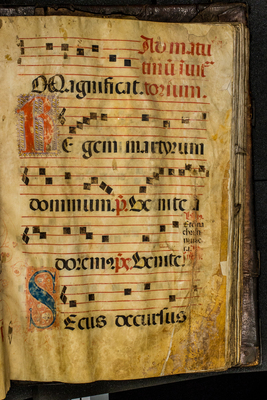 Ad matu
tinũ inuit
Magnificat. torium.
Regem martyrum
dominum. p̃. Uenite a
doremꝰ. p̃s. Uenite.
Secus decursus